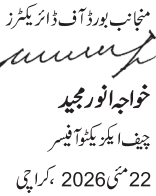 منجانب بورڈ آف ڈائریکٹرز
خواجہ انور مجید
چیف ایگزیکٹو آفیسر
22 مئی 2026ء، کراچی